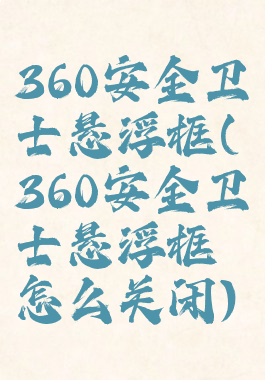 360安全卫
士悬浮框(
360安全卫
士悬浮框
怎么关闭)